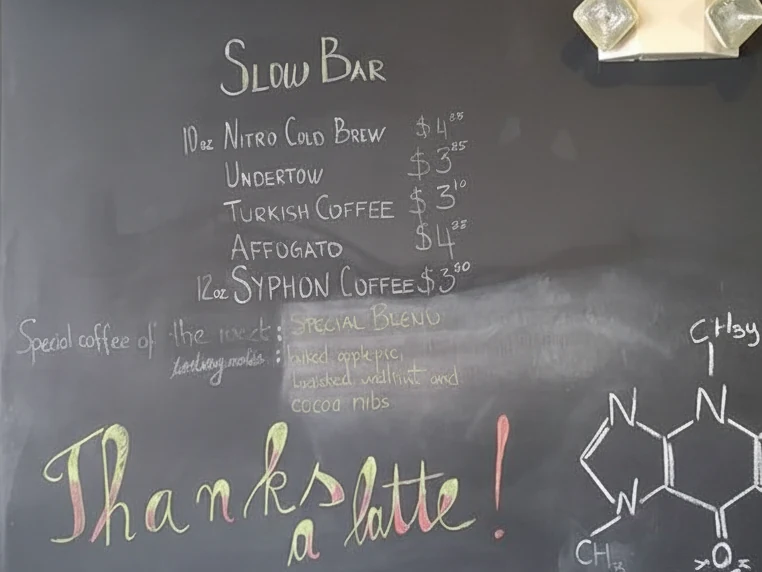 SLOW BAR
10oz NITRO COLD BREW $4
UNDERTOW $3 85
TURKISH COFFEE $3 10
AFFOGATO $4
12oz SYPHON COFFEE $3 50
Special coffee of the week: SPECIAL BLEND
: baked apple pie,
walnut and
cocoa nibs
Thanks
a latte!
CH3
N
N
N
CH3
O